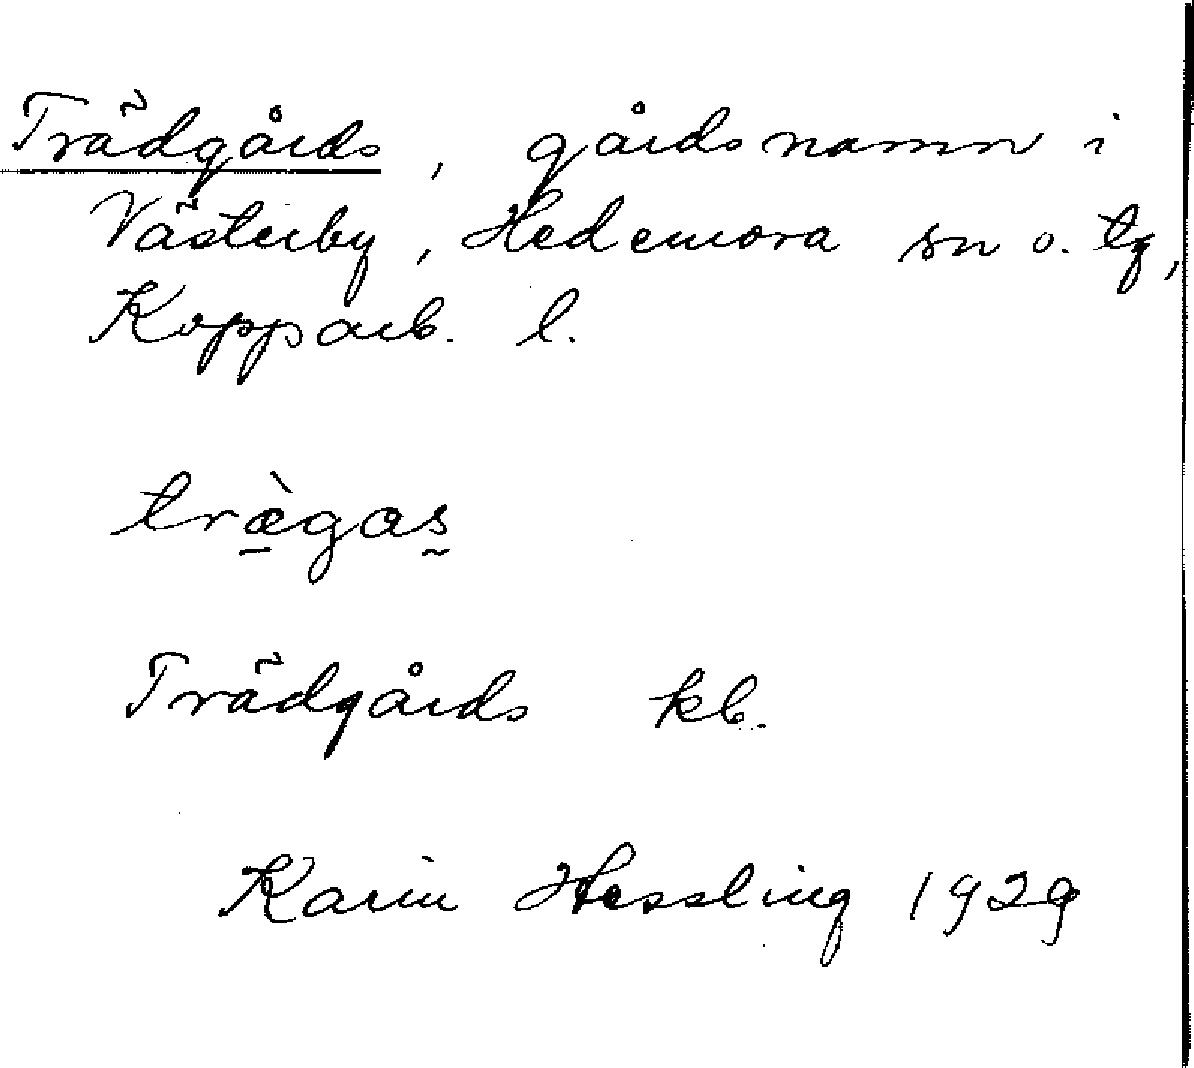 Trädgårds, gårdsnamn i
Västerby, Hedemora sn o. tg,
Kopparb. l.
træ̱̀gas̰
Trädgårds kb.
Karin Hessling 1929